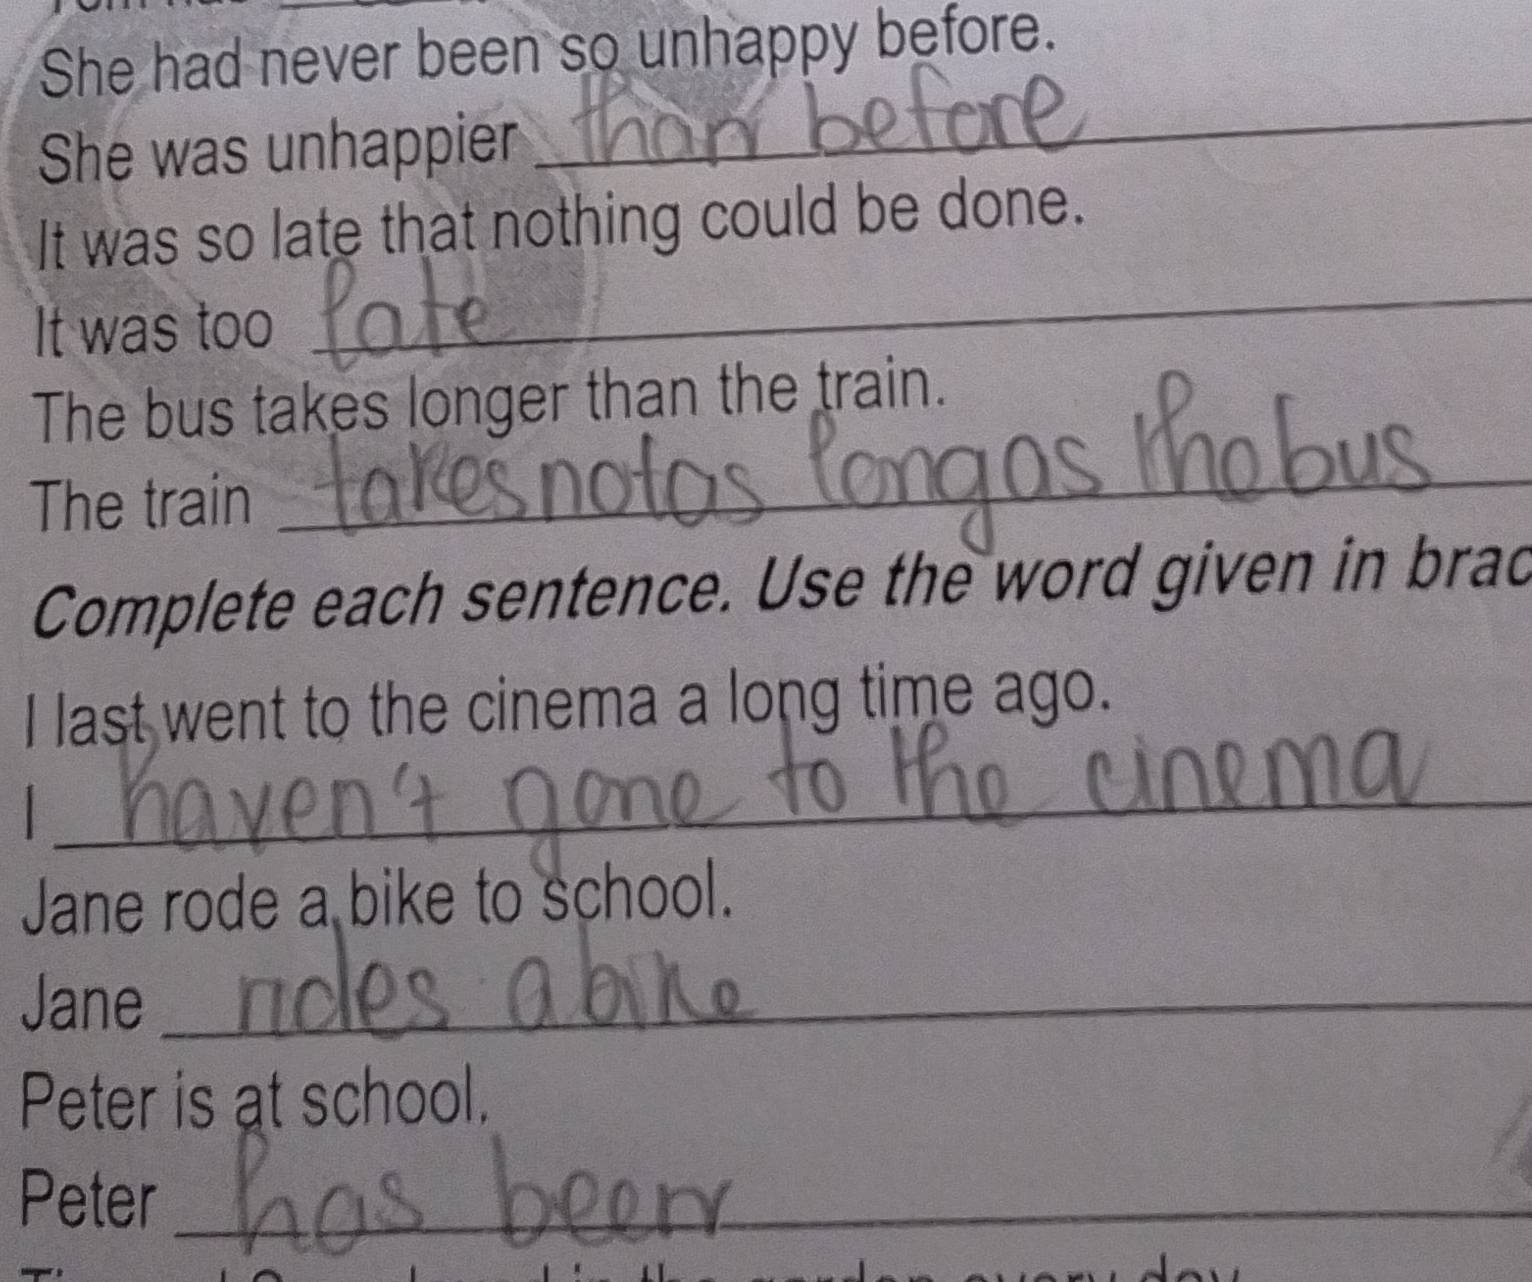 She had never been so unhappy before.
She was unhappier than before
It was so late that nothing could be done.
It was too late
The bus takes longer than the train.
The train takes not as long as the bus
Complete each sentence. Use the word given in brac
I last went to the cinema a long time ago.
I haven't gone to the cinema
Jane rode a bike to school.
Jane rides a bike
Peter is at school.
Peter has been